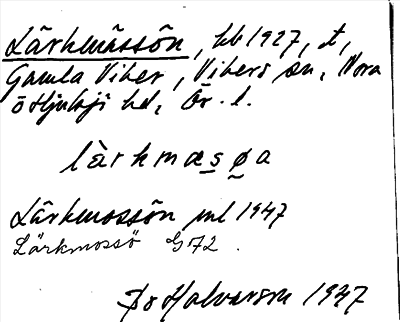 Lärkmåssön, hb 1927, t,
Gamla Viker, Vikers sn, Nora
o Hjulsjö hd, Ör. l.
lärkmæsøa
Lärkmossön ml 1947
Lärkmossö G72.
Halvarson 1937